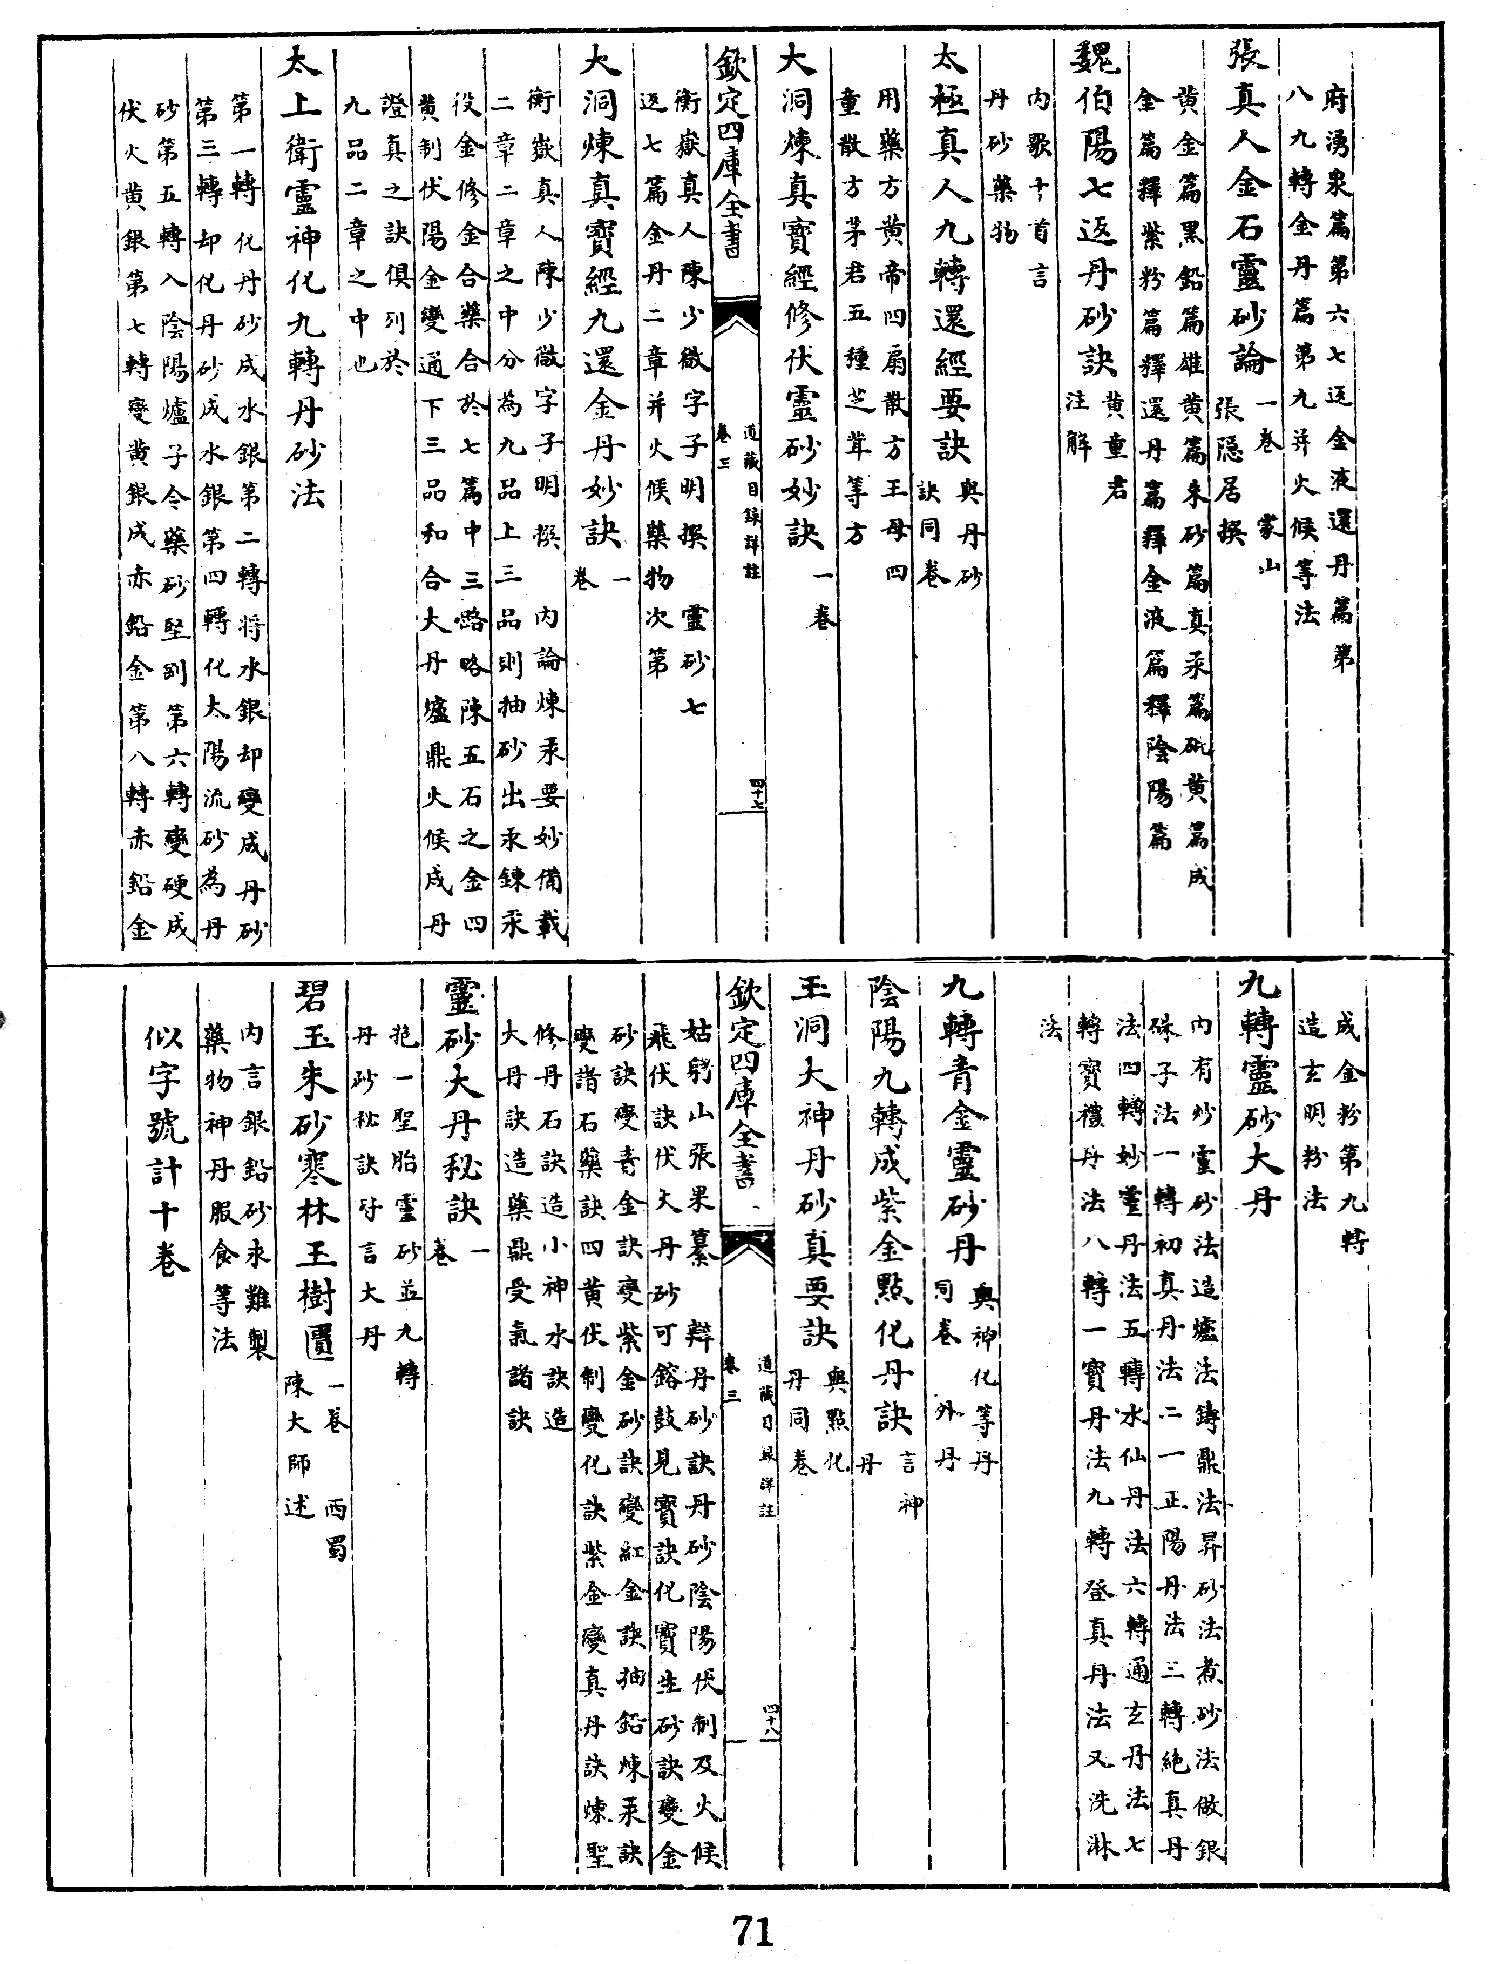 府湧泉篇第六七返金液還丹篇第
八九轉金丹篇第九并火候等法
張真人金石靈砂論一卷 蒙山張隱居撰
黄金篇黑鉛篇雄黄篇朱砂篇真汞篇硫黄篇成
金篇釋紫粉篇釋還丹篇釋金液篇釋陰陽篇
魏伯陽七返丹砂訣黄童君注解
内歌十首言
丹砂藥物
太極真人九轉還經要訣與丹砂訣同卷
用藥方黄帝四扇散方王母四
童散方茅君五種芝茸等方
大洞煉真寳經修伏靈砂妙訣一卷
欽定四庫全書
道藏目録詳註
卷三
四十七
衡嶽真人陳少微字子明撰 靈砂七
返七篇金丹二章并火候藥物次第
大洞煉真寳經九還金丹妙訣一卷
衡嶽真人陳少微字子明撰 内論煉汞要妙備載
二章二章之中分為九品上三品則抽砂出汞鍊汞
役金修金合藥合於七篇中三路略陳五石之金四
黄制伏陽金變通下三品和合大丹爐鼎火候成丹
證真之訣俱列於
九品二章之中也
太上衛靈神化九轉丹砂法
第一轉化丹砂成水銀第二轉将水銀却變成丹砂
第三轉却化丹砂成水銀第四轉化太陽流砂為丹
砂第五轉入陰陽爐子令藥砂堅剛第六轉變硬成
伏火黄銀第七轉變黄銀成赤鉛金第八轉赤鉛金
成金粉第九轉
造玄明粉法
九轉靈砂大丹
内有炒靈砂法造爐法鑄鼎法昇砂法煮砂法做銀
硃子法一轉初真丹法二一正陽丹法三轉絶真丹
法四轉妙靈丹法五轉水仙丹法六轉通玄丹法七
轉寳禯丹法八轉一寳丹法九轉登真丹法又洗淋
法
九轉青金靈砂丹與神化等丹同卷 外丹
陰陽九轉成紫金點化丹訣言神丹
玉洞大神丹砂真要訣與點化丹同卷
欽定四庫全書
道藏目録詳註
卷三
四十八
姑射山張果纂 辯丹砂訣丹砂陰陽伏制及火候
飛伏訣伏火丹砂可鎔鼓見寳訣化寳生砂訣變金
砂訣變青金訣變紫金砂訣變紅金訣抽鉛煉汞訣
變諸石藥訣四黄伏制變化訣紫金變真丹訣煉聖
修丹石訣造小神水訣造
大丹訣造藥鼎受氣諸訣
靈砂大丹秘訣一卷
抱一聖胎靈砂並九轉
丹砂秘訣對言大丹
碧玉朱砂寒林玉樹匱一卷 西蜀陳大師述
内言銀鉛砂汞難製
藥物神丹服食等法
似字號計十卷
71